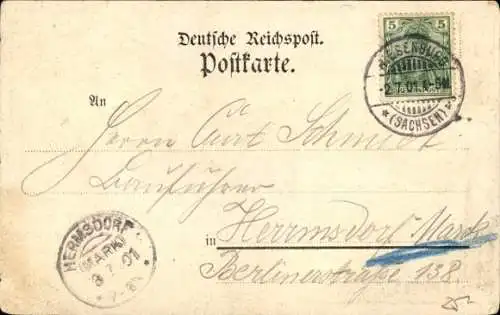 Deutsche Reichspost.
Postkarte.
5 5
2.7.01. 4-5N
*(SACHSEN)*
An
Herrn Curt Schmidt
Bauführer
in Herrmsdorf Mark
Berlinerstraße 138.
HERMSDORF
(MARK)
3 7 01
25-